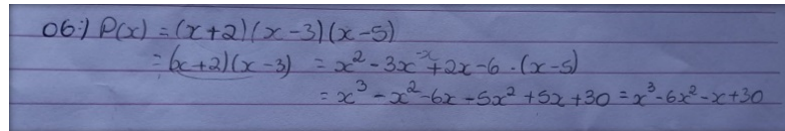 06:) P(x) = (x+2)(x-3)(x-5)
= (x+2)(x-3) = x² - 3x + 2x - 6 · (x-5)
= x³ - x² - 6x - 5x² + 5x + 30 = x³ - 6x² - x + 30